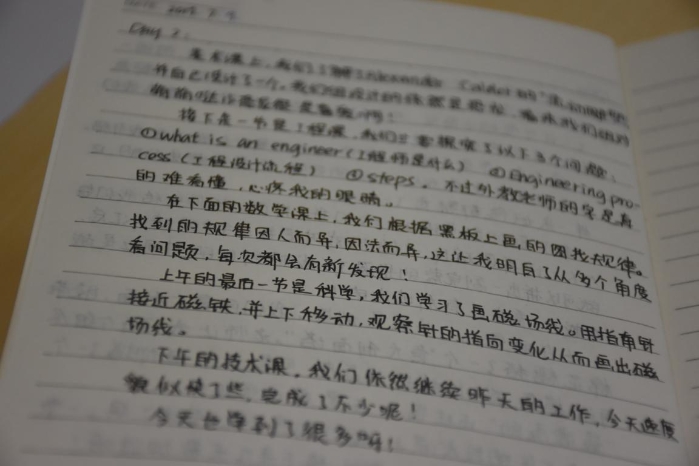 Day 2:
美术课上，我们了解Alexander Calder的"流动雕塑"
并自己设计了一个。我们组设计的依然是
接下是一节是工程课，我们主要探究了以下3个问题：
①what is an engineer（工程师是什么） ②Engineering pro-
cess（工程设计流程） ③steps。不过外教老师的字是真
的难看懂，心疼我的眼睛。
在下面的数学课上，我们根据黑板上画的图找规律。
找到的规律因人而异，因法而异，这让我明白了从多个角度
看问题，每次都会有新发现！
上午的最后一节是科学，我们学习了画磁场线。用指南针
接近磁铁，并上下移动，观察针的指向变化从而画出磁
场线。
下午的技术课，我们依然继续昨天的工作，今天速度
貌似快了些，完成了不少呢！
今天也学到了很多呀！